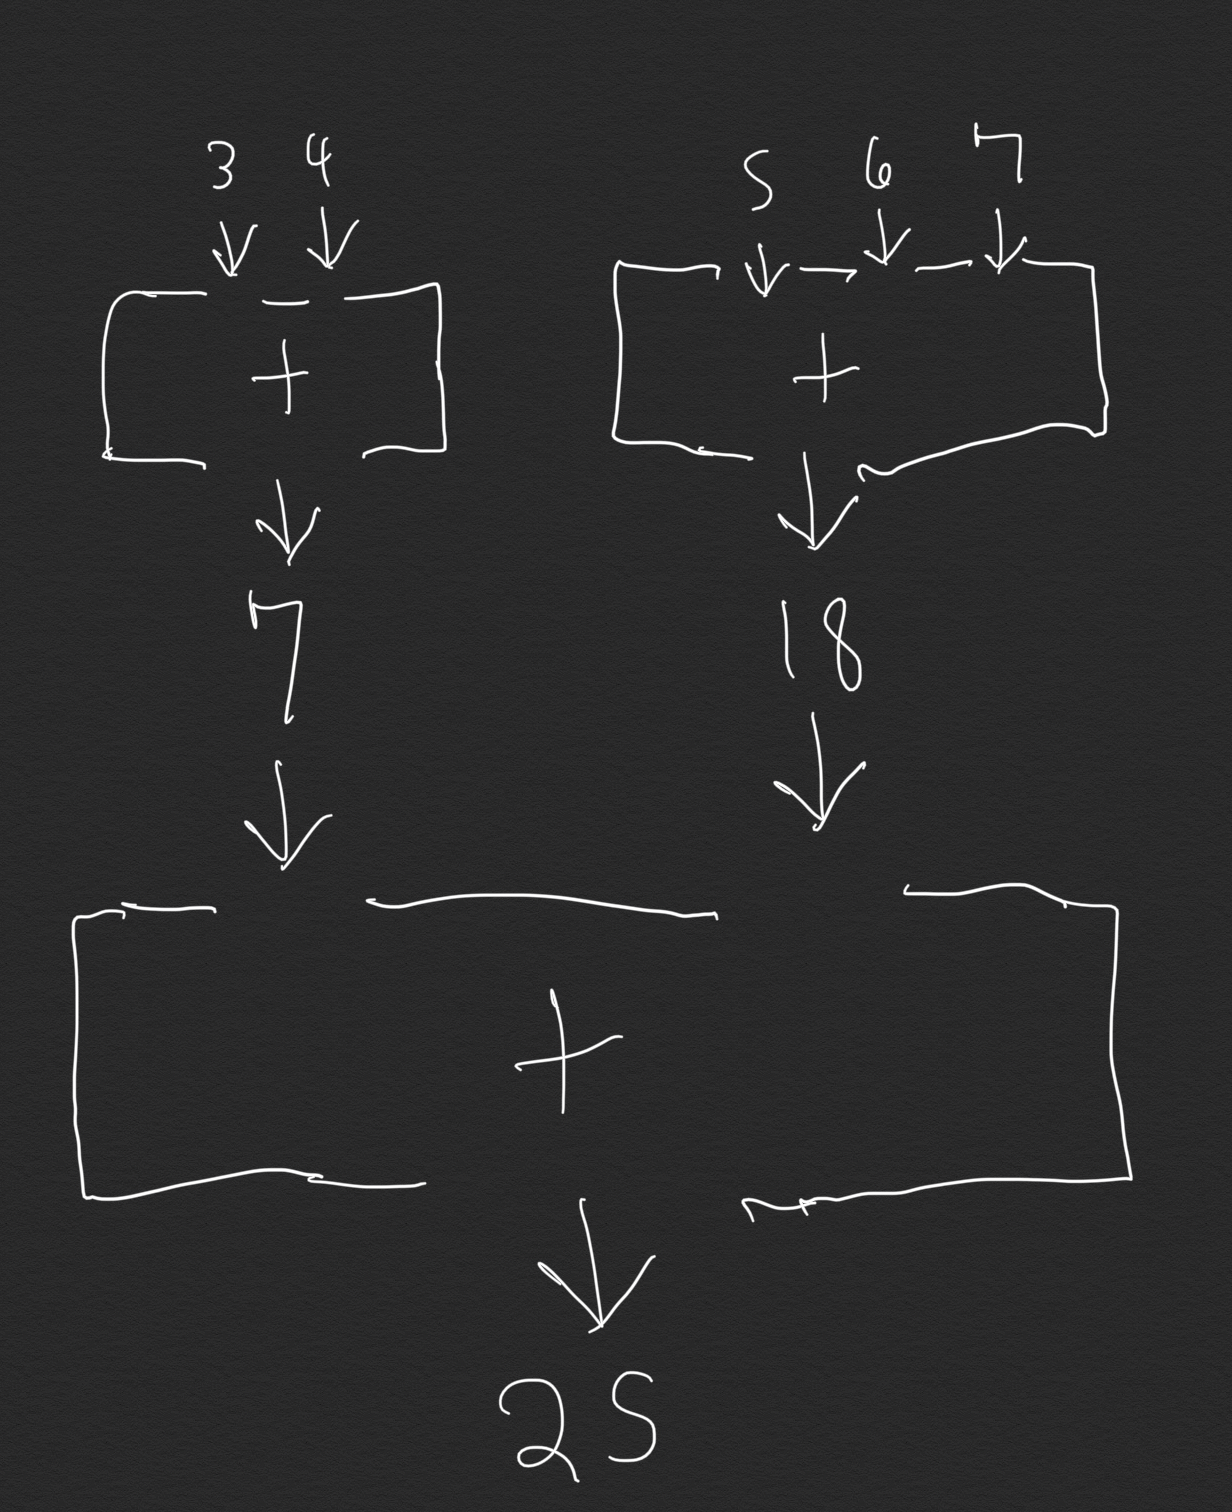 3 4
5 6 7
+
+
7
18
+
25